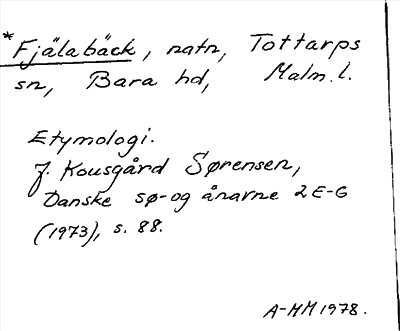 *Fjälabäck, natn, Tottarps
sn, Bara hd, Malm. l.
Etymologi.
J. Kousgård Sørensen,
Danske sø- og ånavne 2 E-G
(1973), s. 88.
A-MM 1978.